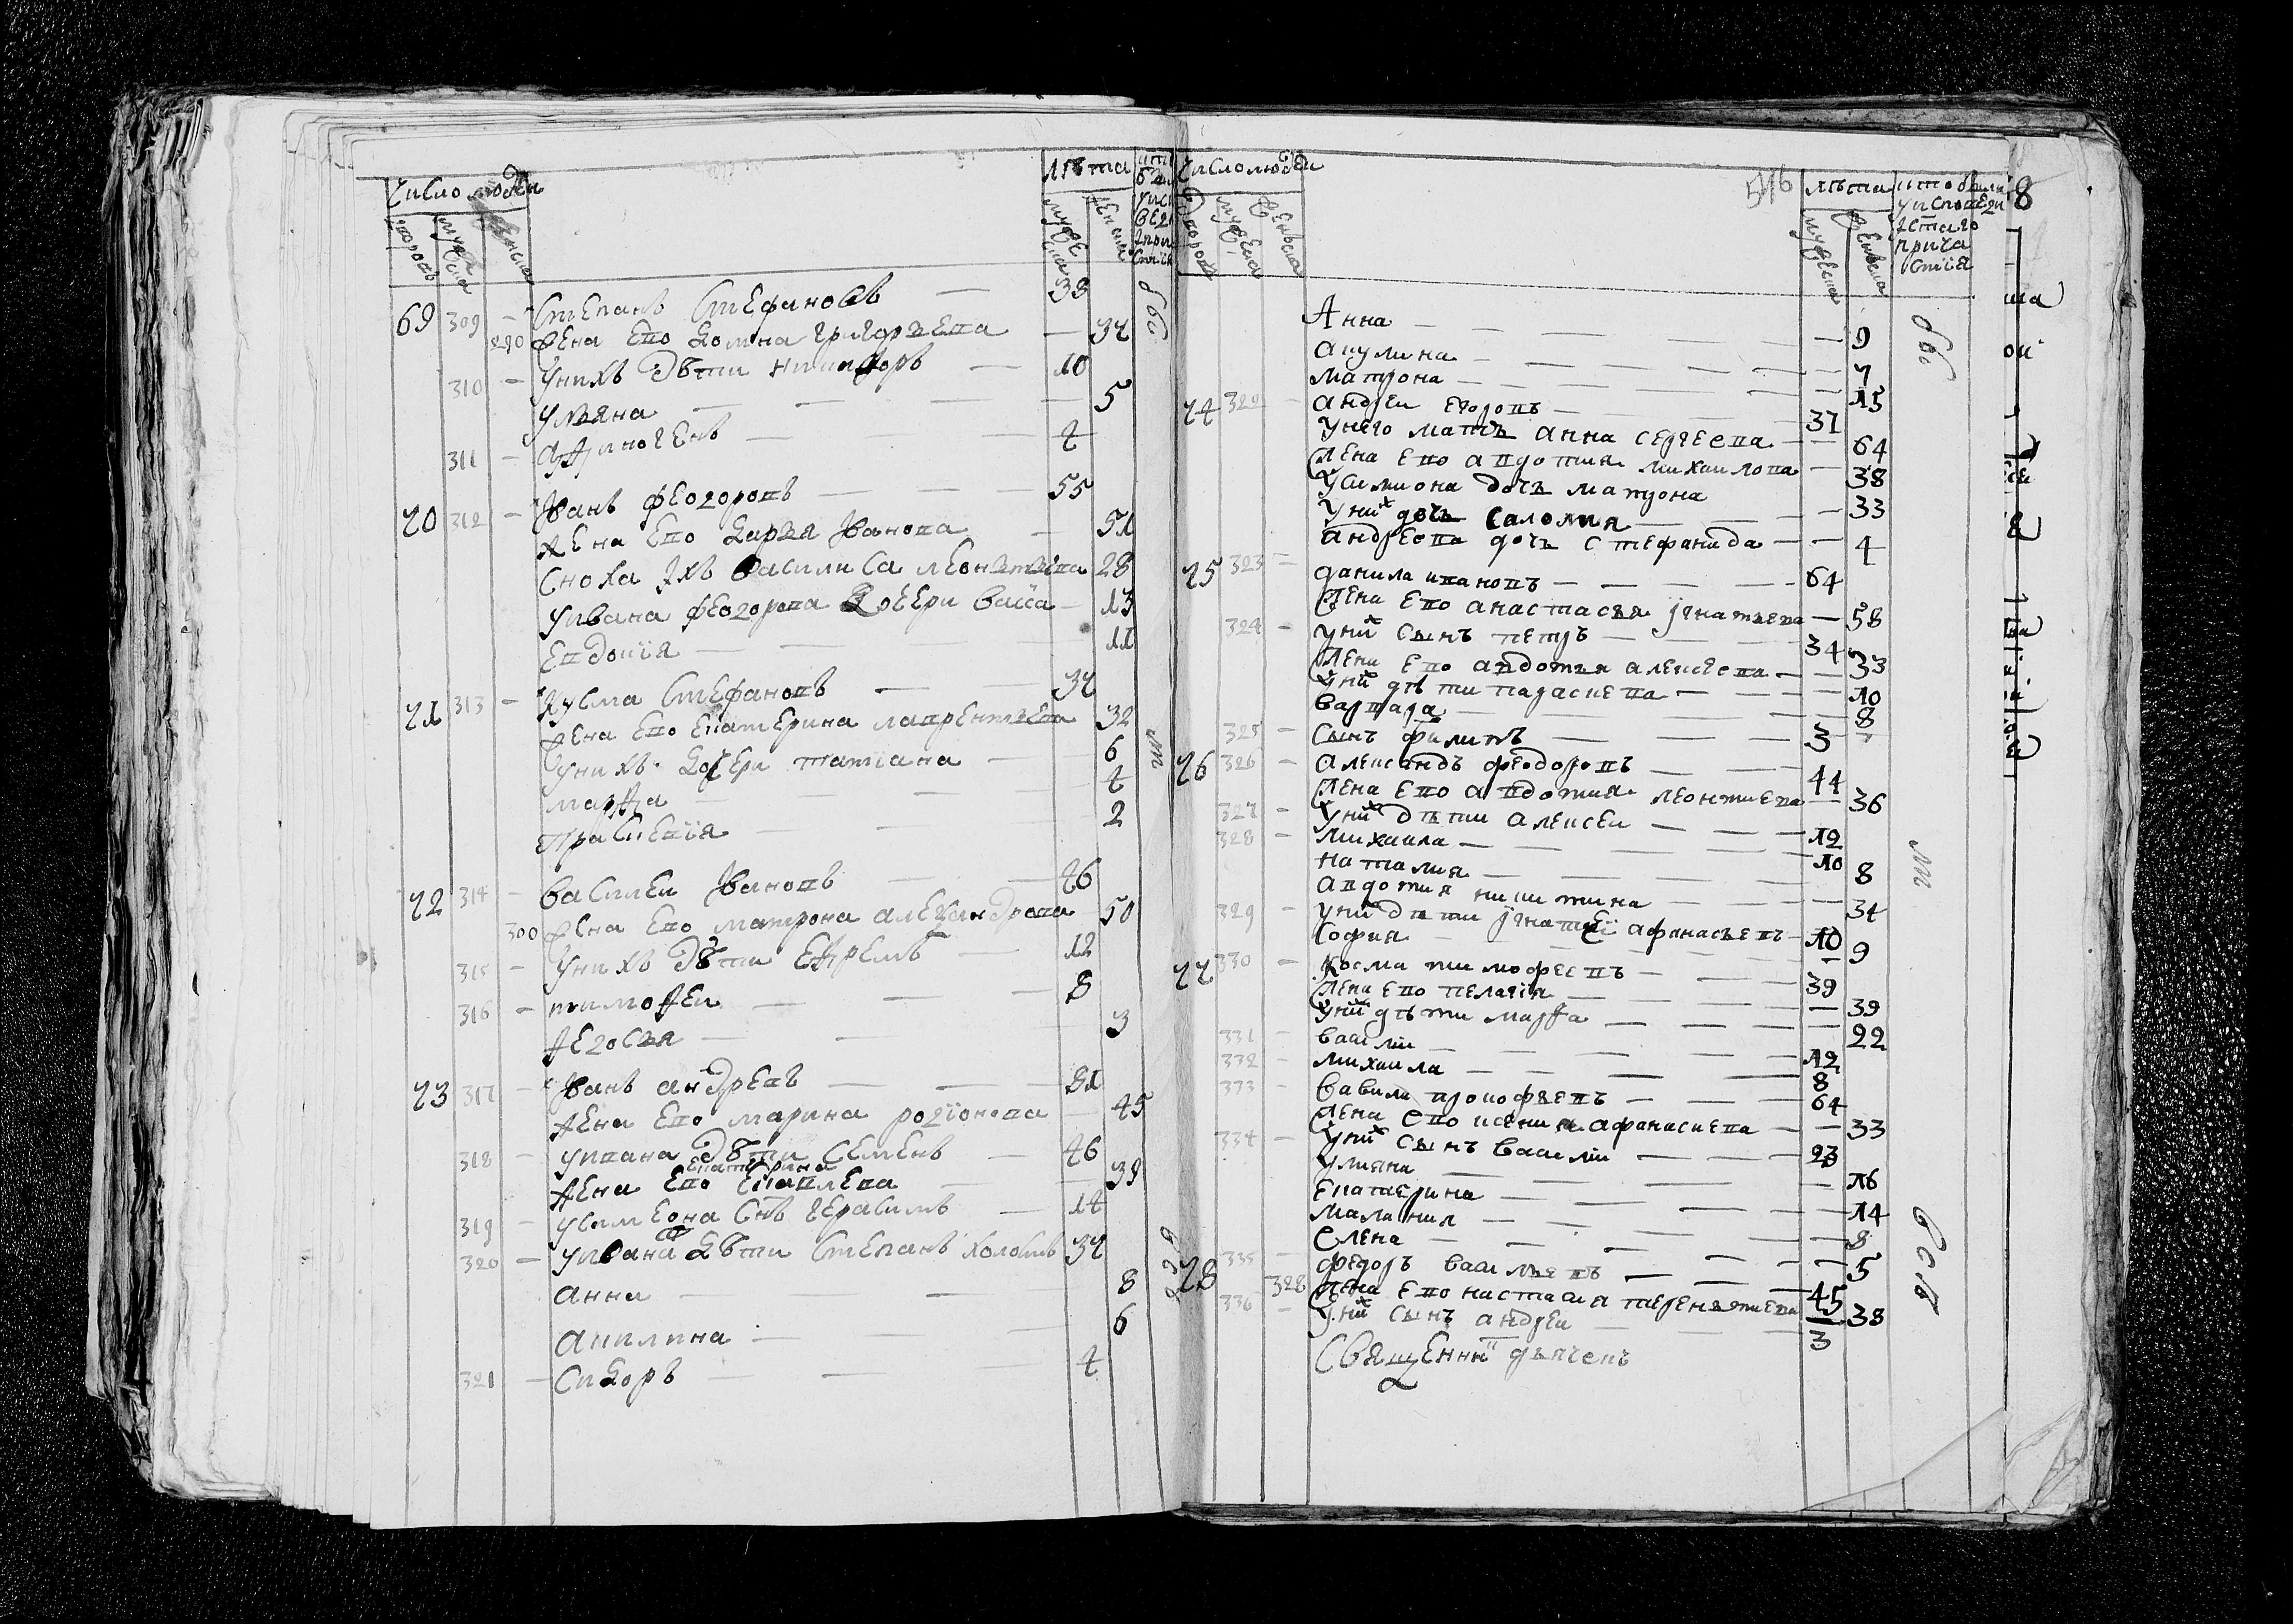 число людеи
лѣта
дворовъ
мужеска
женска
мужеска
женска
69 309 – Степанъ Стефановъ — 39
290 жена ево домна григорьева — 37
310 – Унихъ дѣти никифоръ — 10
Ульяна — 5
311 – афиногенъ — 4
70 312 – Иванъ феодоровъ — 55
жена ево дарья Иванова — 51
Сноха ихъ василиса леонтьева 28
Уивана феодорова дочери васса — 13
Евдокiя — 11
71 313 – Кусма Стефановъ — 37
жена ево екатерина лаврентьева 32
Унихъ дочери татiана — 6
марфа — 4
прасковiя — 2
72 314 – василеи Ивановъ — 46
300 жена ево матрона александрова 50
315 – Унихъ дѣти ефремъ — 12
316 – тимофеи — 8
федосья — 3
73 317 – Иванъ андревъ — 81
жена ево марина родiонова — 45
318 – Уивана дѣти Семенъ — 46
екатерина
жена ево 39
319 – Усимеона снъ герасимъ — 14
320 – Уивана дѣти Степанъ 37
анна — 8
акилина — 6
321 – Сидоръ — 4
число людеи
516
лѣта
и кто были
у исповеди
и стаго
прича
стия
8
дворовъ
мужеска
женска
мужеска
женска
Анна — 9
акулина — 7
матрона — 15
74 322 – андреи егоровъ — 37
Унего мать анна сергеева — 64
жена ево авдотия михаилова — 38
Усимиона дочь матрона — 33
Уних дочь саломия
андреова дочь стефанида — 4
75 323 – данила ивановъ — 64
жена ево анастасья игнатьева — 58
324 – Уних сынъ петръ — 34
жена ево авдотья алексеева — 33
Уних дѣти параскева — 10
варвара — 8
325 – Сынъ филипъ — 3
76 326 – александъ феодоровъ — 44
жена ево авдотия леонтиева — 36
327 – Уних дѣти алексеи — 12
328 – михаила — 10
наталия — 8
авдотия никитина — 34
329 – Уних дѣти игнатеi афанасьевъ — 10
София — 9
77 330 – Косма тимофеевъ — 39
жена ево пелагiя — 39
Уних дѣти марфа — 22
331 – василiи — 12
332 – михаила — 8
373 – вавила прокофьевъ — 64
жена ево ксения афанасиева — 33
334 – Уних сынъ василiи — 23
Улияна — 16
екатерина — 14
малания — 8
елена — 5
78 335 – федоръ васильевъ — 45
328 жена ево настасия терентиева 38
336 – Уних сынъ андреи — 3
Священникъ